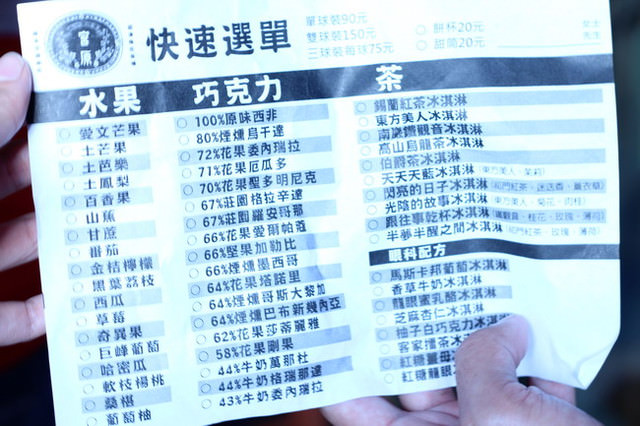 宮原
快速選單
單球裝90元
雙球裝150元
三球裝每球75元
餅杯20元
甜筒20元
女士
先生
水果
愛文芒果
土芒果
土芭樂
土鳳梨
百香果
山蕉
甘蔗
番茄
金桔檸檬
黑葉荔枝
西瓜
草莓
奇異果
巨峰葡萄
哈密瓜
軟枝楊桃
桑椹
葡萄柚
巧克力
100%原味西非
80%煙燻烏干達
72%花果委內瑞拉
71%花果厄瓜多
70%花果聖多明尼克
67%莊園格拉辛達
67%莊園羅安哥那
66%花果愛爾帕蔻
66%堅果加勒比
66%煙燻墨西哥
64%花果塔諾里
64%煙燻哥斯大黎加
64%煙燻巴布新幾內亞
62%花果莎蒂麗雅
58%花果剛果
44%牛奶萬那杜
44%牛奶格瑞那達
43%牛奶委內瑞拉
茶
錫蘭紅茶冰淇淋
東方美人冰淇淋
南 鐵觀音冰淇淋
高山烏龍茶冰淇淋
伯爵茶冰淇淋
天天天藍冰淇淋（東方美人、茉莉）
閃亮的日子冰淇淋（ 門紅茶、迷迭香、薰衣草）
光陰的故事冰淇淋（東方美人、菊花、肉桂）
跟往事乾杯冰淇淋（鐵觀音、桂花、玫瑰、薄荷）
半夢半醒之間冰淇淋（ 門紅茶、玫瑰、薄荷）
眼科配方
馬斯卡邦葡萄冰淇淋
香草牛奶冰淇淋
龍眼蜜乳酪冰淇淋
芝麻杏仁冰淇淋
柚子白巧克力冰淇
客家擂茶冰
紅糖薑母
紅糖龍眼